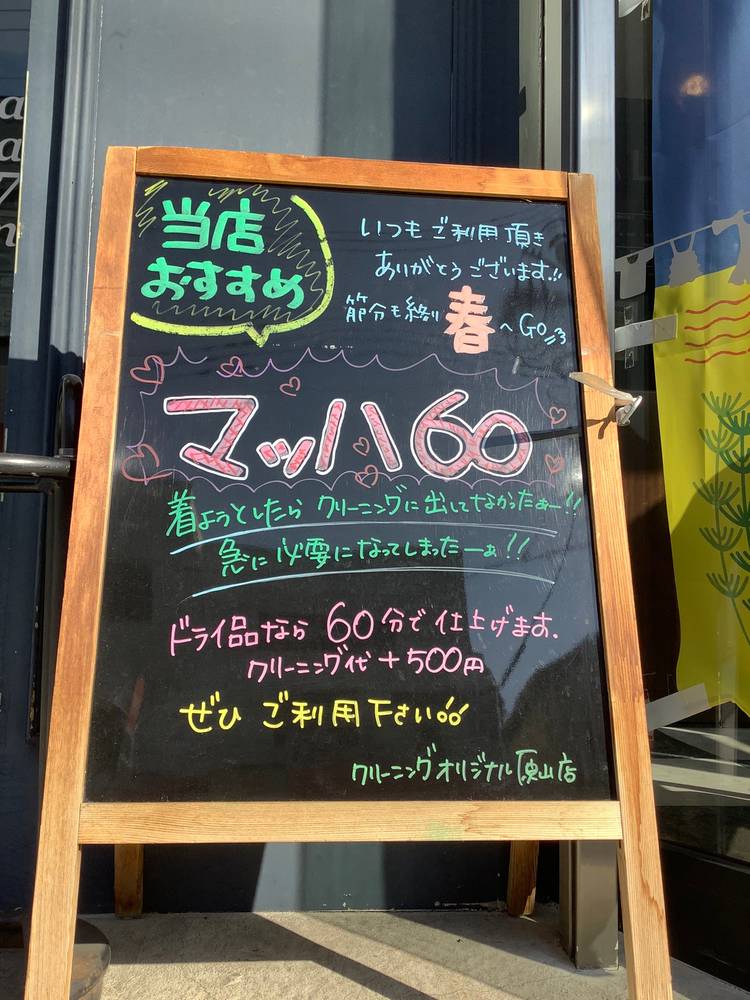 当店
おすすめ
いつもご利用頂き
ありがとうございます!!
節分も終り
春へGO
マッハ60
着ようとしたら クリーニングに出してなかったぁー!!
急に必要になってしまったーぁ!!
ドライ品なら 60分で仕上げます.
クリーニング代+500円
ぜひ ご利用下さい
クリーニングオリジナル原山店